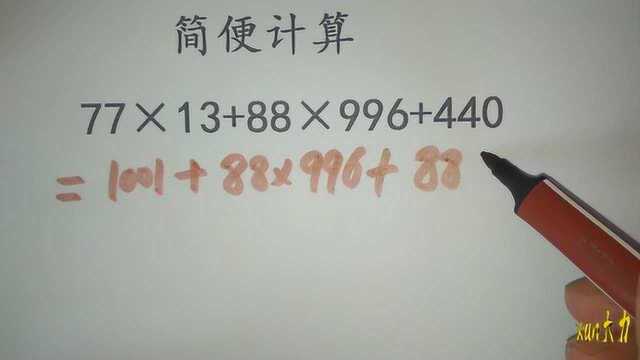 简便计算
77×13+88×996+440
=1001+88×996+88
xue大力